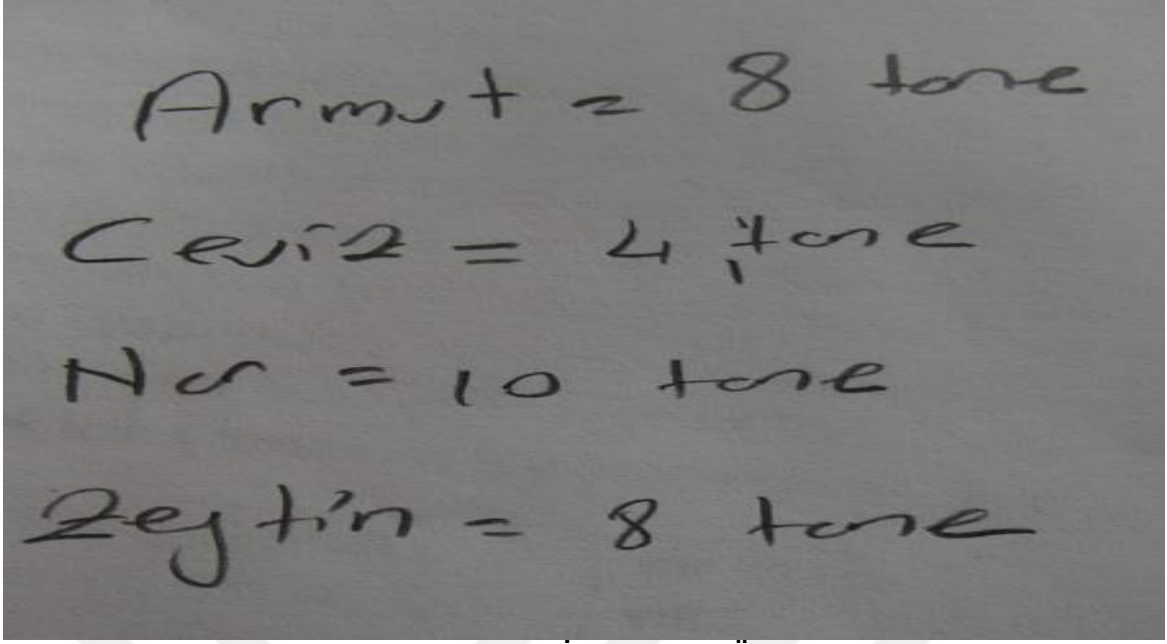 Armut = 8 tane
Ceviz = 4 tane
Nar = 10 tane
Zeytin = 8 tane